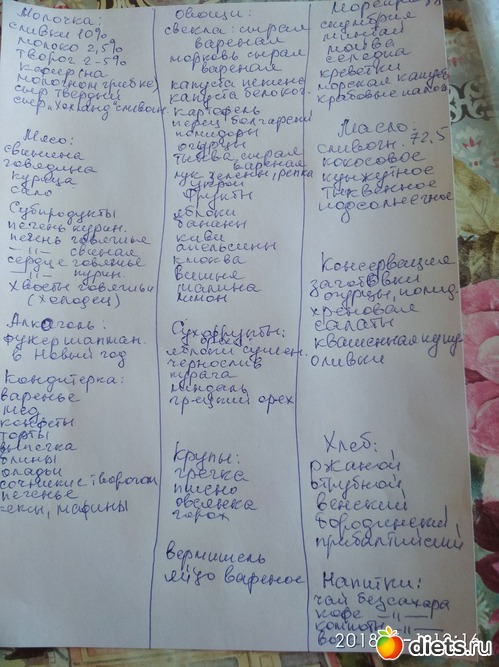 Молочка:
сливки 10%
молоко 2,5%
творог 2-5%
кефир (на
молочном грибке)
сыр твердый
сыр „Холланд" сливочн.
Мясо:
свинина
говядина
курица
сало
Субпродукты
печень курин.
печень говяжье
—"— свиная
сердце говяжье
—"— курин.
Хвосты говяжьи
(холодец)
Алкоголь:
фужер шампан.
в Новый год
Кондитерка:
варенье
мёд
конфеты
торты
выпечка
блины
оладьи
сочники с творогом
печенье
кексы, мафины
Овощи:
свекла: сырая
вареная
морковь сырая
вареная
капуста пекинс
капуста белокоч.
картофель
перец болгарский
помидоры
огурцы
тыква сырая
вареная
лук зелёный, репка
укроп
Фрукты
яблоки
бананы
киви
апельсины
клюква
вишня
малина
лимон
Сухофрукты:
орехи
яблоки сушен.
чернослив
курага
миндаль
грецкий орех
Крупы:
гречка
пшено
овсянка
горох
вермишель
яйцо вареное
скумбрия
минтай
мойва
селедка
креветки
морская капуста
крабовые палоч
Масло:
сливочн. 72,5
кокосовое
кунжутное
тыквенное
подсолнечное
Консервация
заготовки
огурцы, помид.
хреновая
салаты
квашенная капу
оливки
Хлеб:
ржаной
отрубной
венский
бородинский
прибалтийский
Напитки:
чай без сахара
кофе —"—
компоты —"—
diets.ru